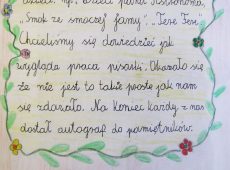 "Smok ze smoczej jamy".
Chcieliśmy się dowiedzieć jak
wygląda praca pisarki. Okazało się
że nie jest to takie proste jak nam
się zdarało. Na koniec każdy z nas
dostał autograf do pamiętników.